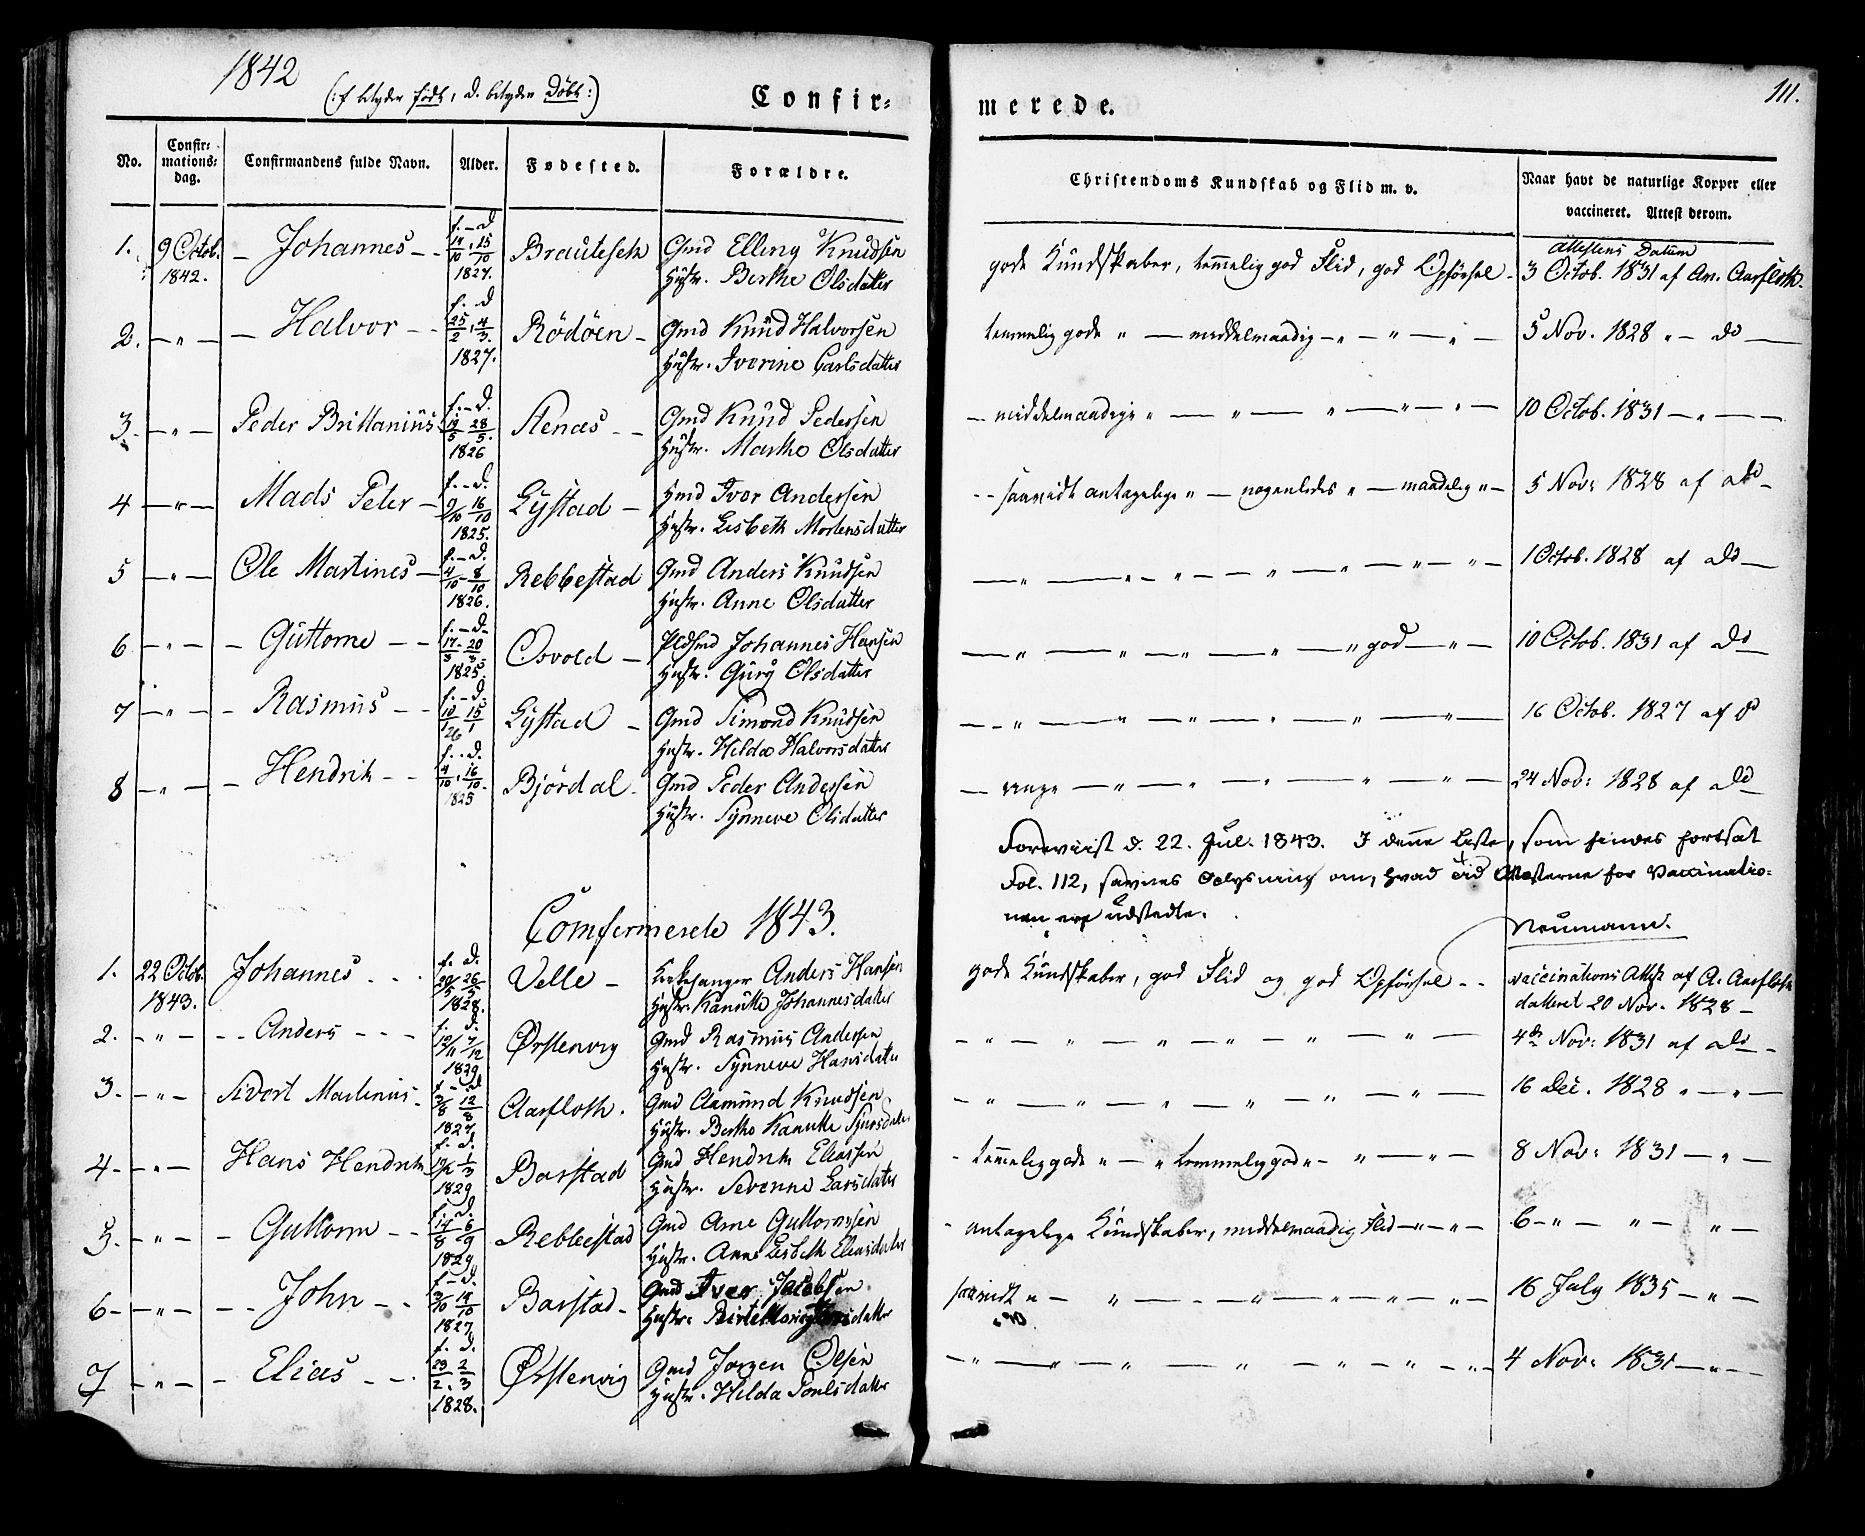 1842
(: f betyder født, d. betyder Døbt :)
Confir=
merede.
111.
No.
Confir=
mations=
dag.
Confirmandens fulde Navn.
Alder.
Fødested.
Forældre.
Christendoms Kundskab og Flid m. v.
Naar havt de naturlige Kopper eller
vaccineret. Attest derom.
Attestens Datum
1. 9 Octob. 1842. Johannes f. d. 14/10 15/10 1827. Brauteseth Gmd Elling Knudsen
Hustr. Berthe Olsdatter
gode Kundskaber, temmelig god Flid, god Opførsel - 3 Octob. 1831 af An. Aarfloth.
2. - " - Halvor f. d 25/2 4/3 1827. Rödöen Gmd Knud Halvorsen
Hustr. Iverine Carlsdatter
temmelig gode " - middelmaadig - " - " - 5 Nov. 1828 " - do
3. - " - Peder Brittanius f. - d. 28/5 1826 Stenæs Gmd Knud Pedersen
Hustr. Marthe Olsdatter
- middelmaadige " - " - " - " - 10 Octob. 1831 - " -
4 - " - Mads Peter f. - d. 9/10 16/10 1825. Lystad Gmd Ivor Andersen
Hustr. Lisbeth Mortensdatter
- saavidt antagelige " - nogenledes " - maadelig " - 5 Nov: 1828 af do
5 - " - Ole Martines f. - d. 4/10 8/10 1826. Rebbestad Gmd Anders Knudsen
Hustr. Anne Olsdatter
1 Octob. 1828 af do
6 - " - Guttorme f. - d. 17/3 20/3 1825. Osvold Pldsmd Johannes Hansen
Hustr. Gurÿ Olsdatter
" god - " - 10 Octob. 1831 af do
7 - " - Rasmus f. - d. 10/1 15/1 26 Lystad Gmd Simond Knudsen
Hustr. Hildæ Halvorsdatter
16 Octob. 1827 af d
8 - " - Hendrik f. - d. 4/10 16/10 1825 Björdal Gmd Peder Andersen
Hustr. Synneve Olsdatter
- ringe - " - 24 Nov: 1828 af do
Foreviist d. 22. Jul. 1843. I denne Liste, som findes fortsat
Fol. 112, savnes Oplysning om, hvad Tid Attesterne for Vaccinatio-
nen ere udstedte.
Neumann.
Comfermerede 1843.
1. 22 Octob. 1843. Johannes f. d. 20/5 26/5 1828. Velle Kirkesanger Anders Hansen
Hustr. Kanutte Johannesdatter
gode Kundskaber, god Flid og god Opførsel - - Vaccinations Attest af A. Aarfloth
datteret 20 Nov. 1828 -
2. - " - Anders f. d. 10/11 7/12 1829 Ørstenvig Gmd Rasmus Andersen
Hustr. Synneve Hansdatter
4de Nov: 1831 af do -
3. - " - Sivert Martinius f - d 3/8 12/8 1827 Aarfloth. Gmd Aamund Knudsen
Hustr. Berthe Kanutte Siursdatter
16 Dec. 1828 " - " -
4 - " - Hans Hendrik f. d. 1/3 1829 Barstad Gmd Hendrik Eliassen
Hustr. Severine Larsdatter
- temmelig gode " - " temmelig god " - " - " - 8 Nov: 1831 - " -
5. - " - Guttorm f. d. 14/8 6/9 1829 Rebbestad Gmd Arne Guttormsen
Hustr. Anne Lisbeth Eliasdatter
- antagelige Kundskaber, middelmaadig Flid - " - " - 6 - " - " - " -
6 - " - John f - d. 3/10 14/10 1827 Barstad Gmd Iver Jacobsen
Hustr.
saavidt " - " - 16 July 1835 - " -
7 - " - Elias f. d. 23/2 2/3 1828. Ørstenvig Gmd Jørgen Olsen
Hustr. Hilda Poulsdatter
4 Nov: 1831 - " -